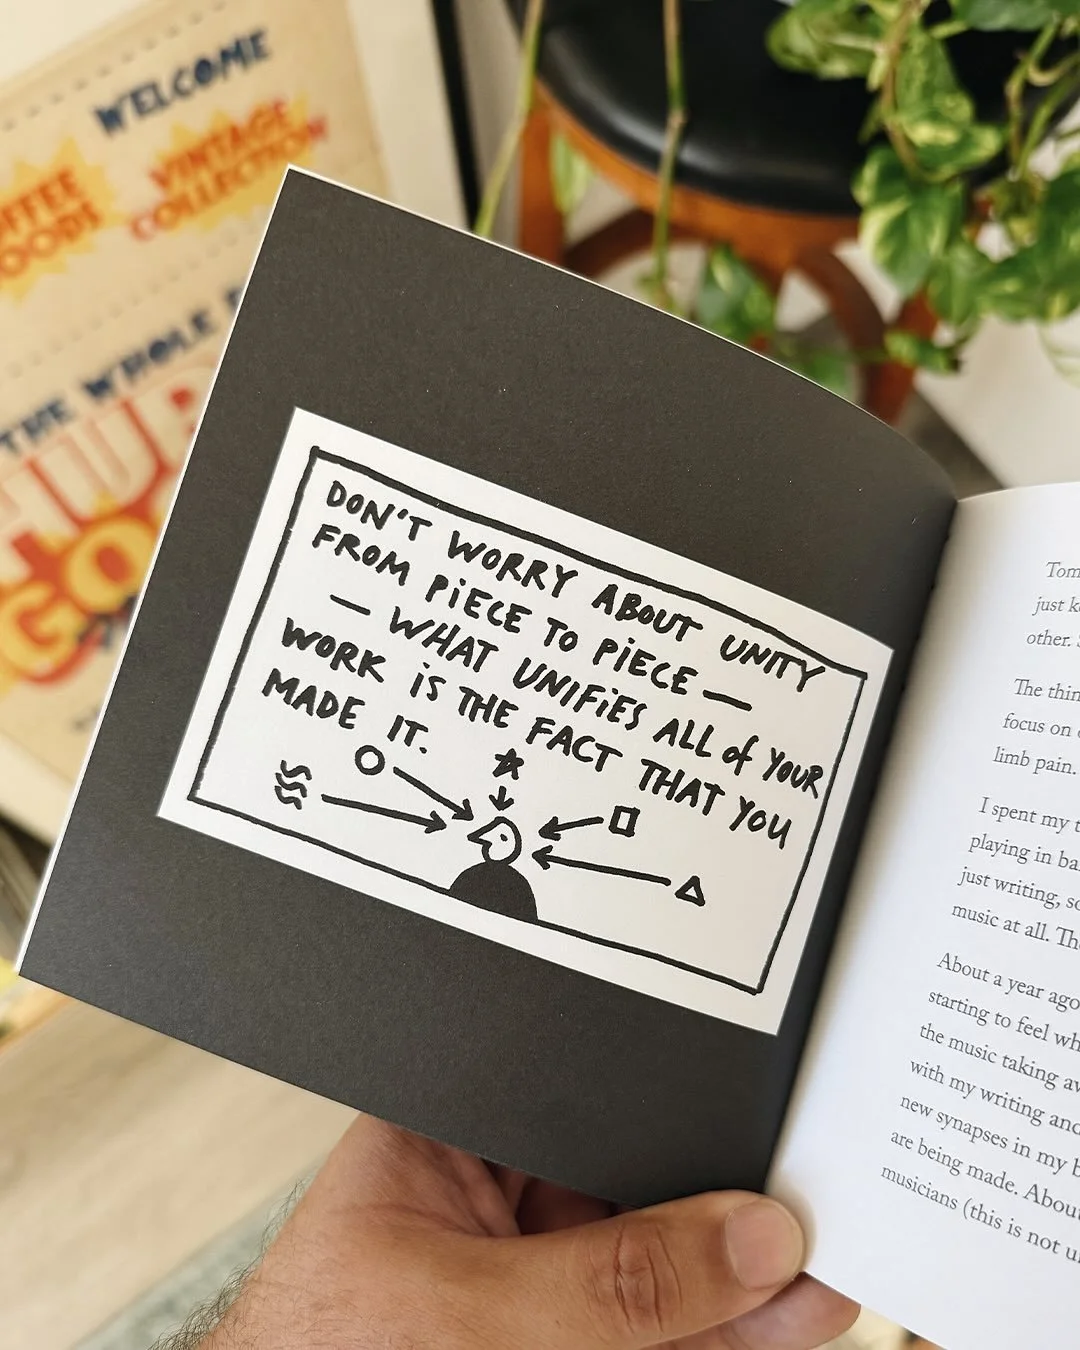 WELCOME
VINTAGE
COLLECTION
THE WHOLE
DON'T WORRY ABOUT UNITY
FROM PIECE TO PIECE —
— WHAT UNIFIES ALL of YOUR
WORK IS THE FACT THAT YOU
MADE IT.
just
other.
The
focus on
limb pain.
I spent my
playing in
just writing,
music at all.
About a year ago
starting to feel
the music taking
with my writing and
new synapses in my
are being made. About
musicians (this is not